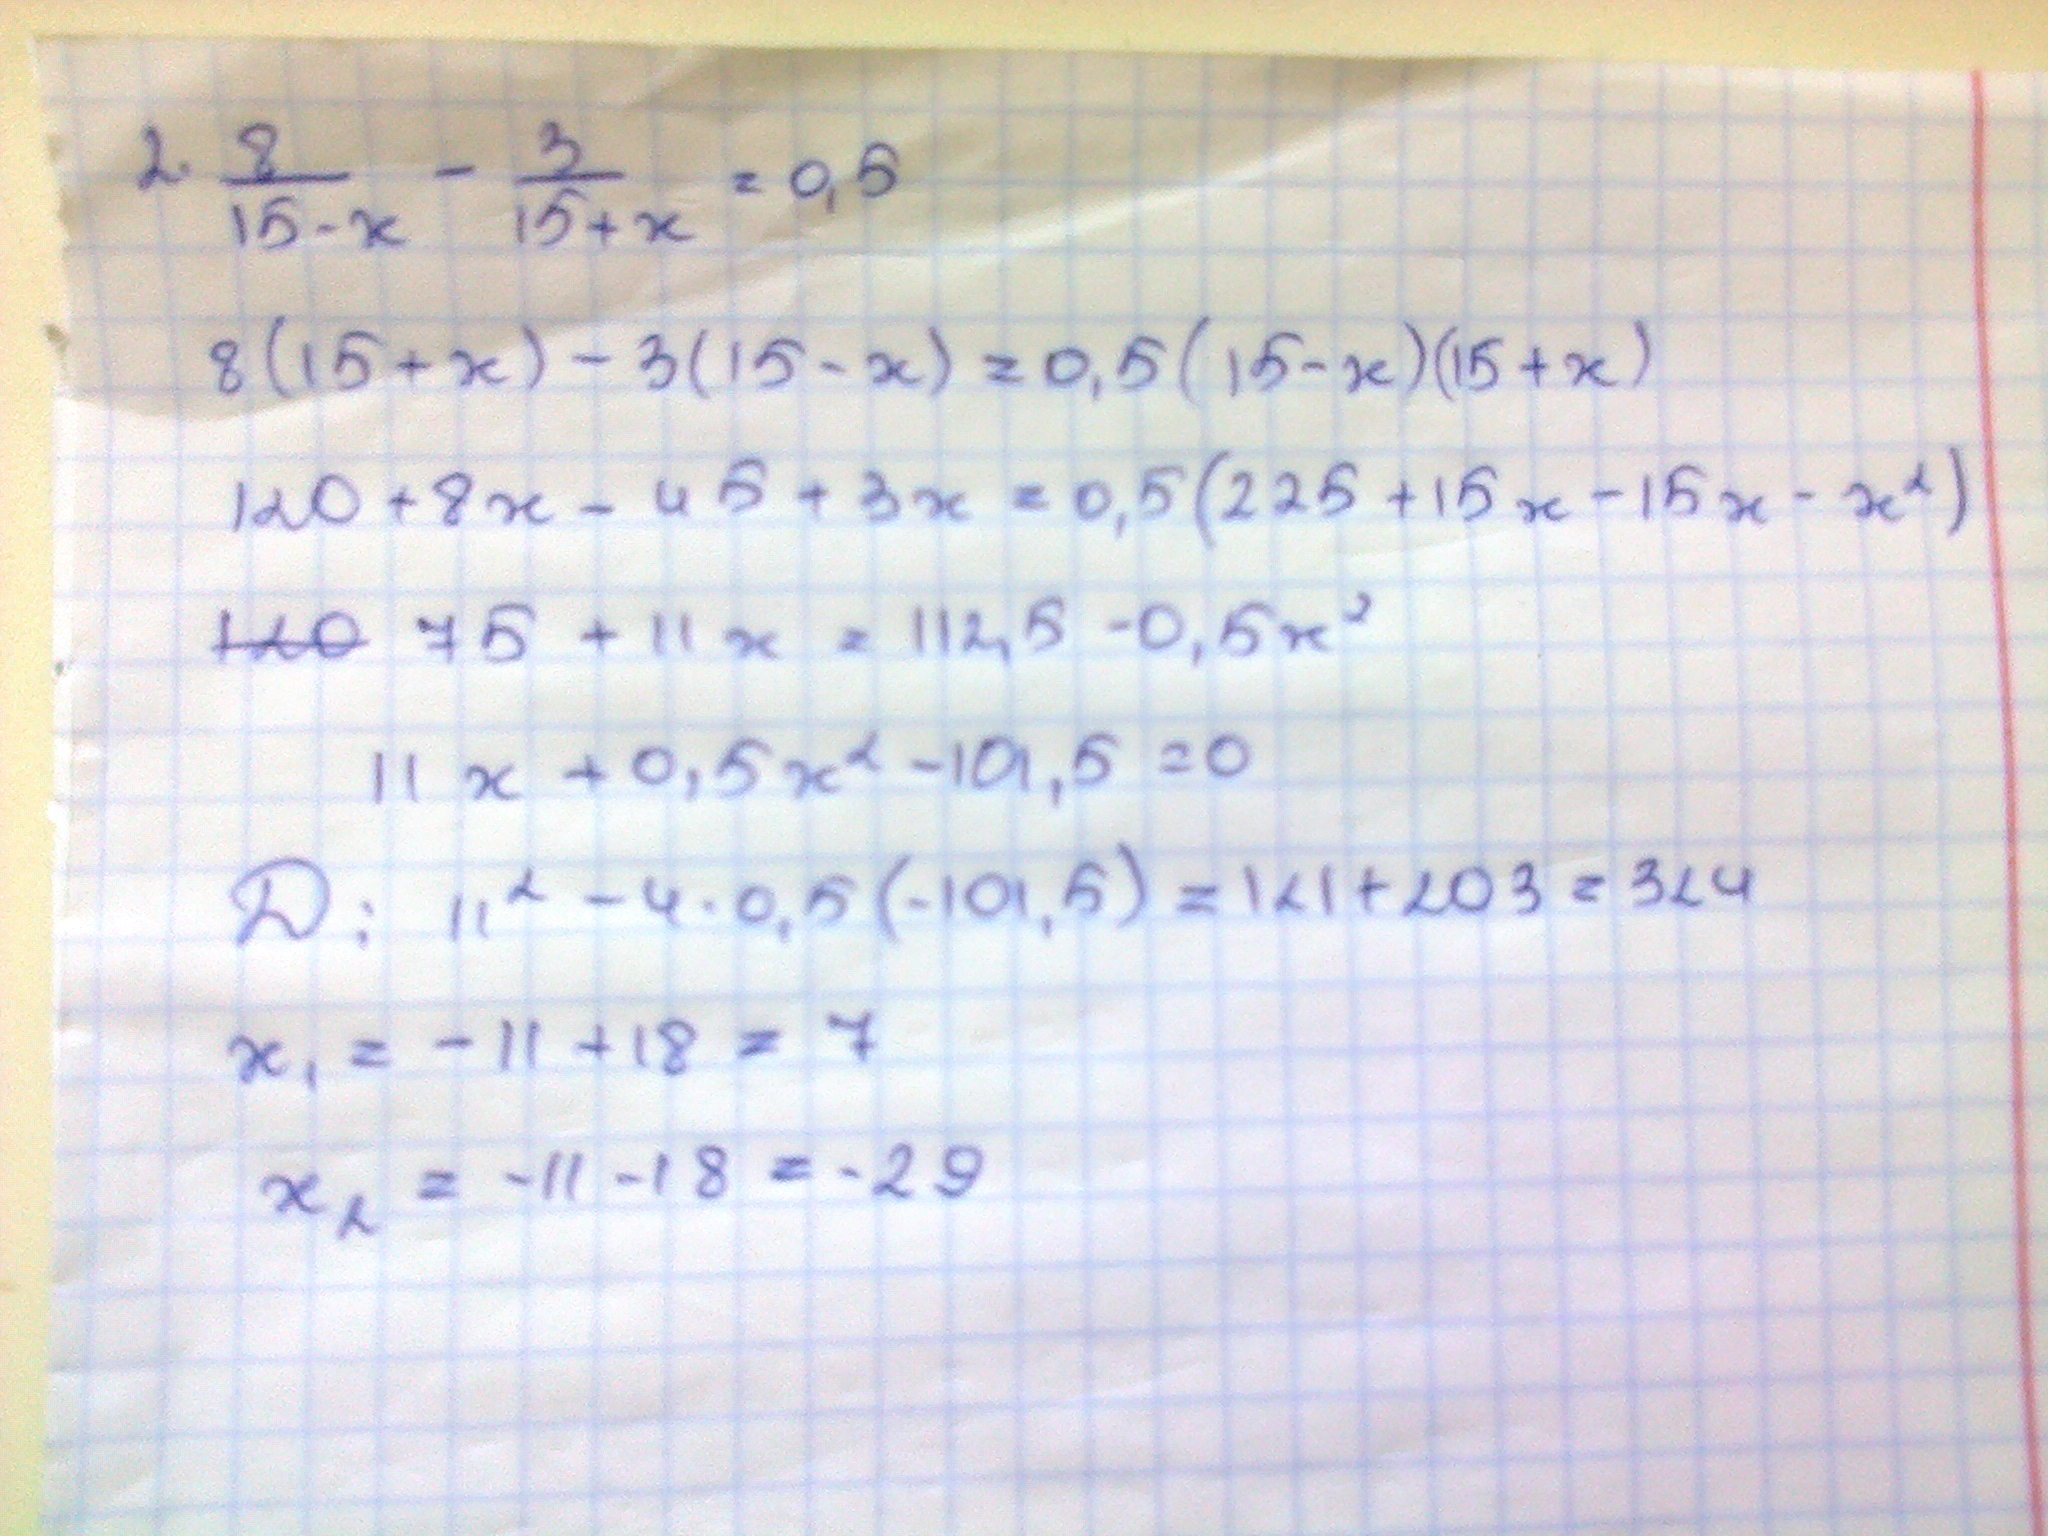 2. 8/(15-x) - 3/(15+x) = 0,5
8(15+x)-3(15-x)=0,5(15-x)(15+x)
120+8x-45+3x=0,5(225+15x-15x-x²)
120 75+11x=112,5-0,5x²
11x+0,5x²-101,5=0
D: 11²-4·0,5(-101,5)=121+203=324
x₁=-11+18=7
x₂=-11-18=-29